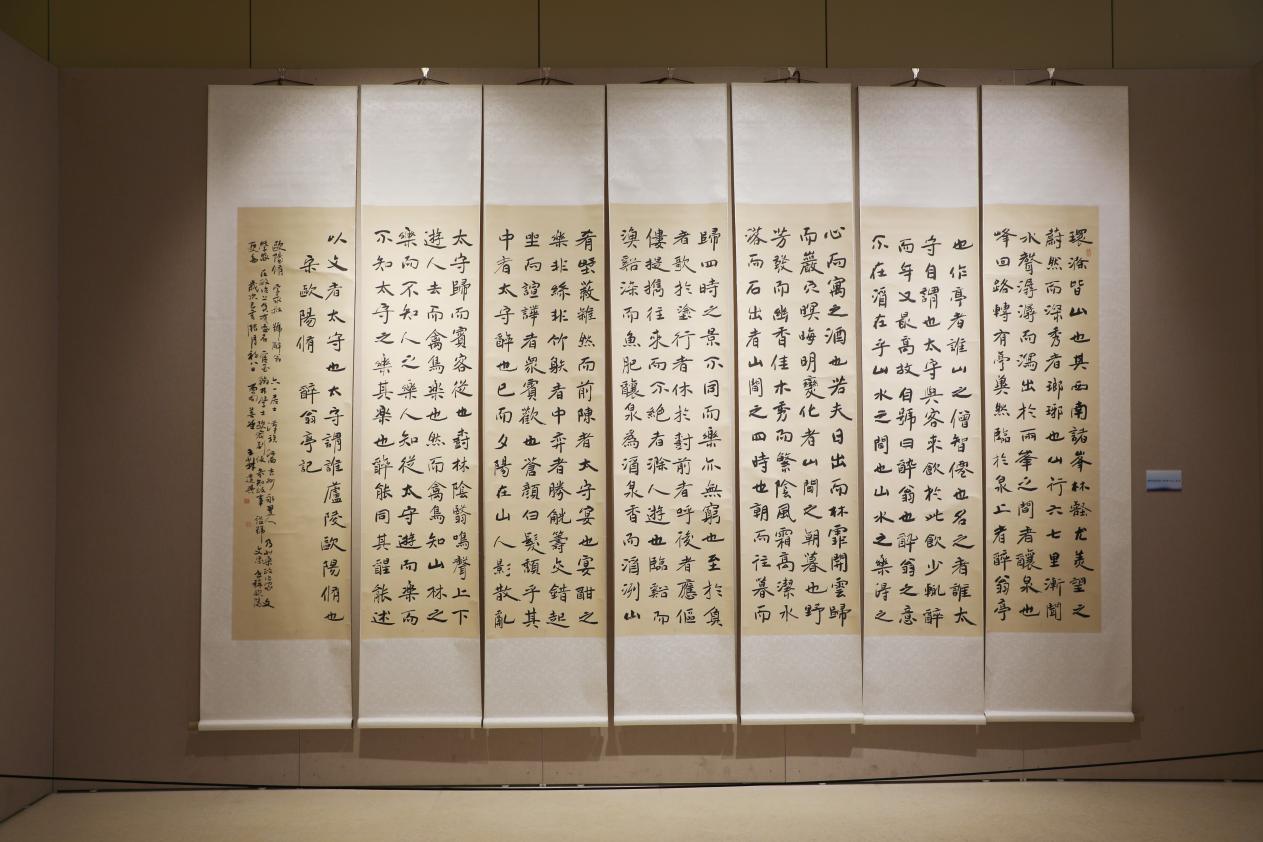 環滁皆山也其西南諸峯林壑尤美望之
蔚然而深秀者瑯琊也山行六七里漸聞
水聲潺潺而瀉出於兩峯之間者釀泉也
峰回路轉有亭翼然臨於泉上者醉翁亭
也作亭者誰山之僧智僊也名之者誰太
守自謂也太守與客來飲於此飲少輒醉
而年又最高故自號曰醉翁也醉翁之意
不在酒在乎山水之間也山水之樂得之
心而寓之酒也若夫日出而林霏開雲歸
而巖穴暝晦明變化者山間之朝暮也野
芳發而幽香佳木秀而繁陰風霜高潔水
落而石出者山間之四時也朝而往暮而
歸四時之景不同而樂亦無窮也至於負
者歌於塗行者休於樹前者呼後者應傴
僂提攜往來而不絕者滁人遊也臨谿而
漁谿深而魚肥釀泉為酒泉香而酒洌山
肴野蔌雜然而前陳者太守宴也宴酣之
樂非絲非竹射者中弈者勝觥籌交錯起
坐而諠譁者眾賓歡也蒼顏白髮頹乎其
中者太守醉也已而夕陽在山人影散亂
太守歸而賓客從也樹林陰翳鳴聲上下
遊人去而禽鳥樂也然而禽鳥知山林之
樂而不知人之樂人知從太守遊而樂而
不知太守之樂其樂也醉能同其醒能述
以文者太守也太守謂誰廬陵歐陽脩也
宋歐陽脩 醉翁亭記
歐陽脩 字永叔 號醉翁 六一居士 漢族 江西吉州永豐人 乃北宋政治家 文
學家 在政治上負有盛名 官至翰林學士 樞密副使 參知政事 諡號文忠 世稱歐陽